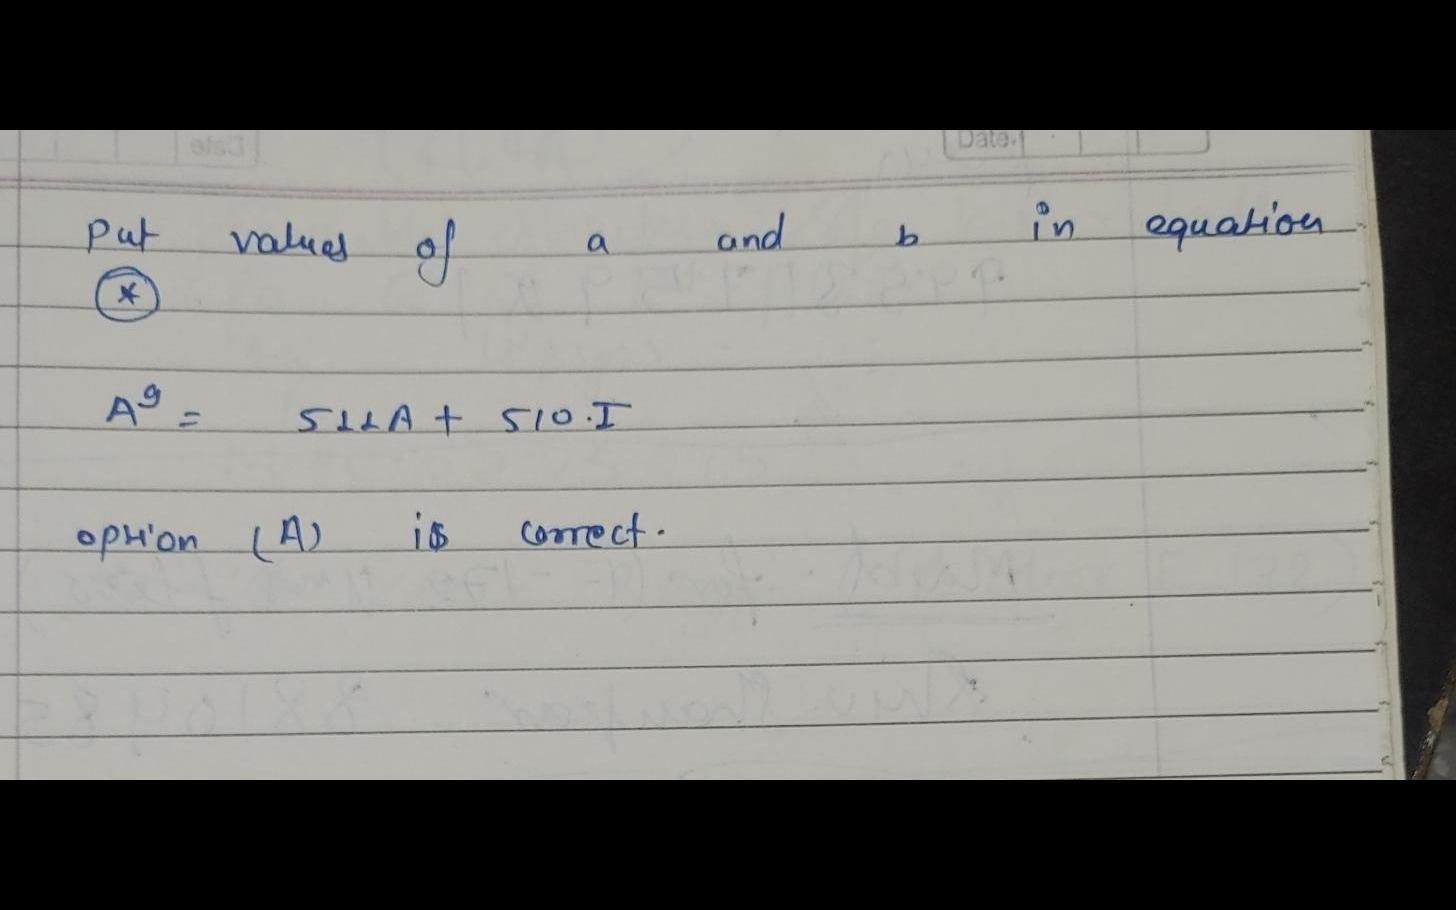 Date.
Put values of a and b in equation
*
A⁹ = 511A + 510.I
option (A) is correct.